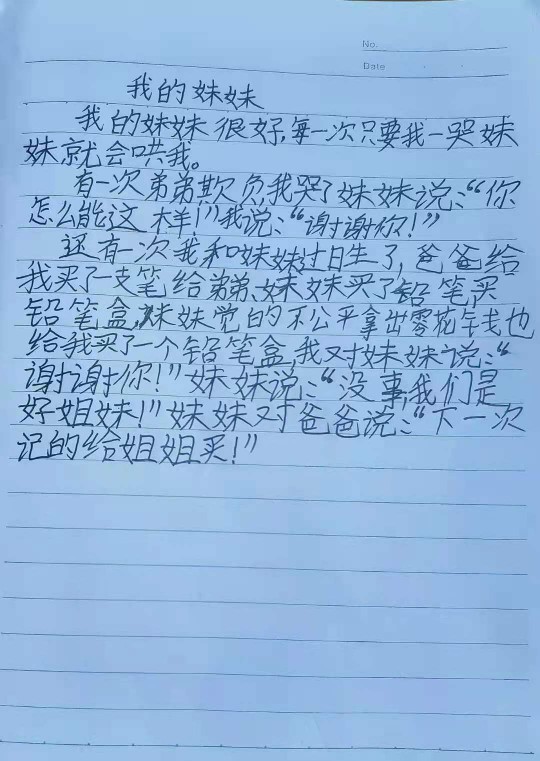 No.
Date
我的妹妹
我的妹妹很好,每一次只要我一哭妹
妹就会哄我。
有一次弟弟欺负我哭了妹妹说:“你
怎么能这样!”我说:“谢谢你!”
还有一次我和妹妹过日生了,爸爸给
我买了一支笔给弟弟、妹妹买了铅笔买
铅笔盒,妹妹觉的不公平拿出零花钱也
给我买了一个铅笔盒,我对妹妹说:“
谢谢你!”妹妹说:“没事,我们是
好姐妹!”妹妹对爸爸说:“下一次
记的给姐姐买!”